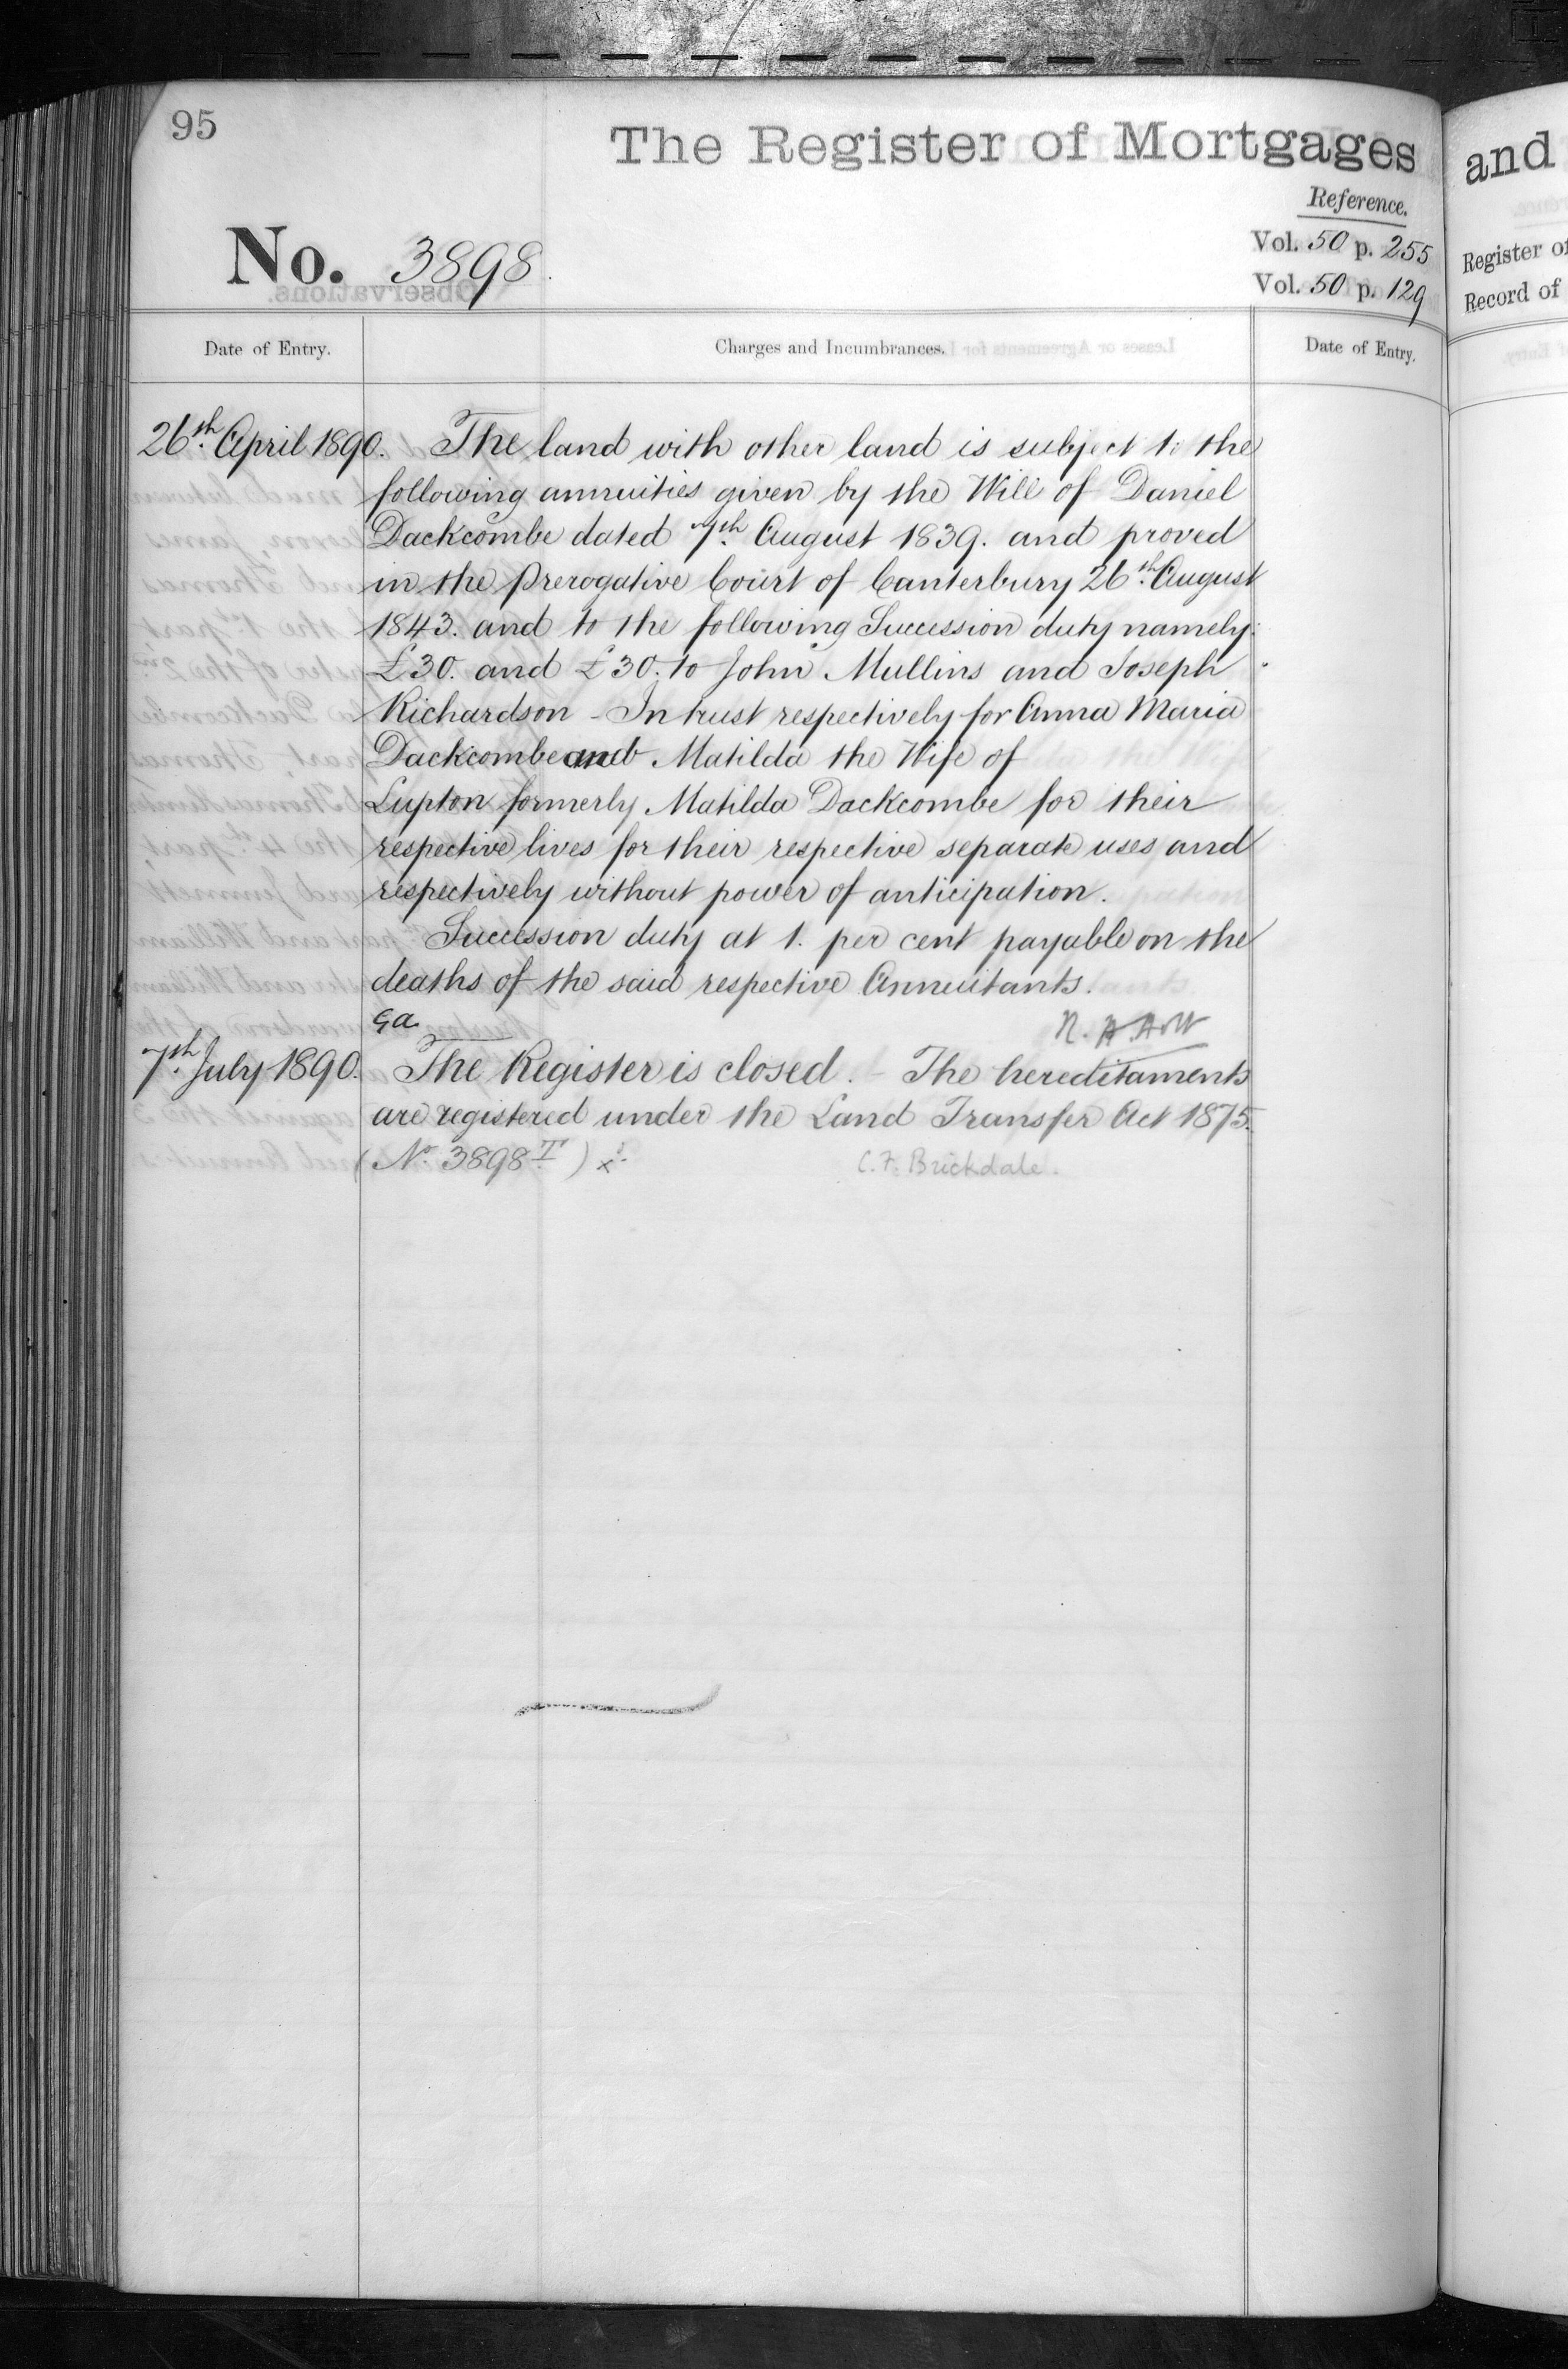 95
The Register of Mortgages
and
Reference.
No. 3898.
Vol. 50 p. 255
Register of
Vol. 50 p. 129
Record of
Date of Entry.
Charges and Incumbrances.
Date of Entry.
26th April 1890. The land with other land is subject to the
following annuities given by the Will of Daniel
Dackcombe dated 7th August 1839. and proved
in the Prerogative Court of Canterbury 26th August
1843. and to the following Succession duty namely:
£30. and £30. to John Mullins and Joseph
Richardson - In trust respectively for Anna Maria
Dackcombe and Matilda the Wife of
Lupton formerly Matilda Dackcombe for their
respective lives for their respective separate uses and
respectively without power of anticipation.
Succession duty at 1. per cent payable on the
deaths of the said respective Annuitants.
7th July 1890. The Register is closed. - The hereditaments
are registered under the Land Transfer Act 1875.
(No. 3898 T)
C. F. Brickdale.